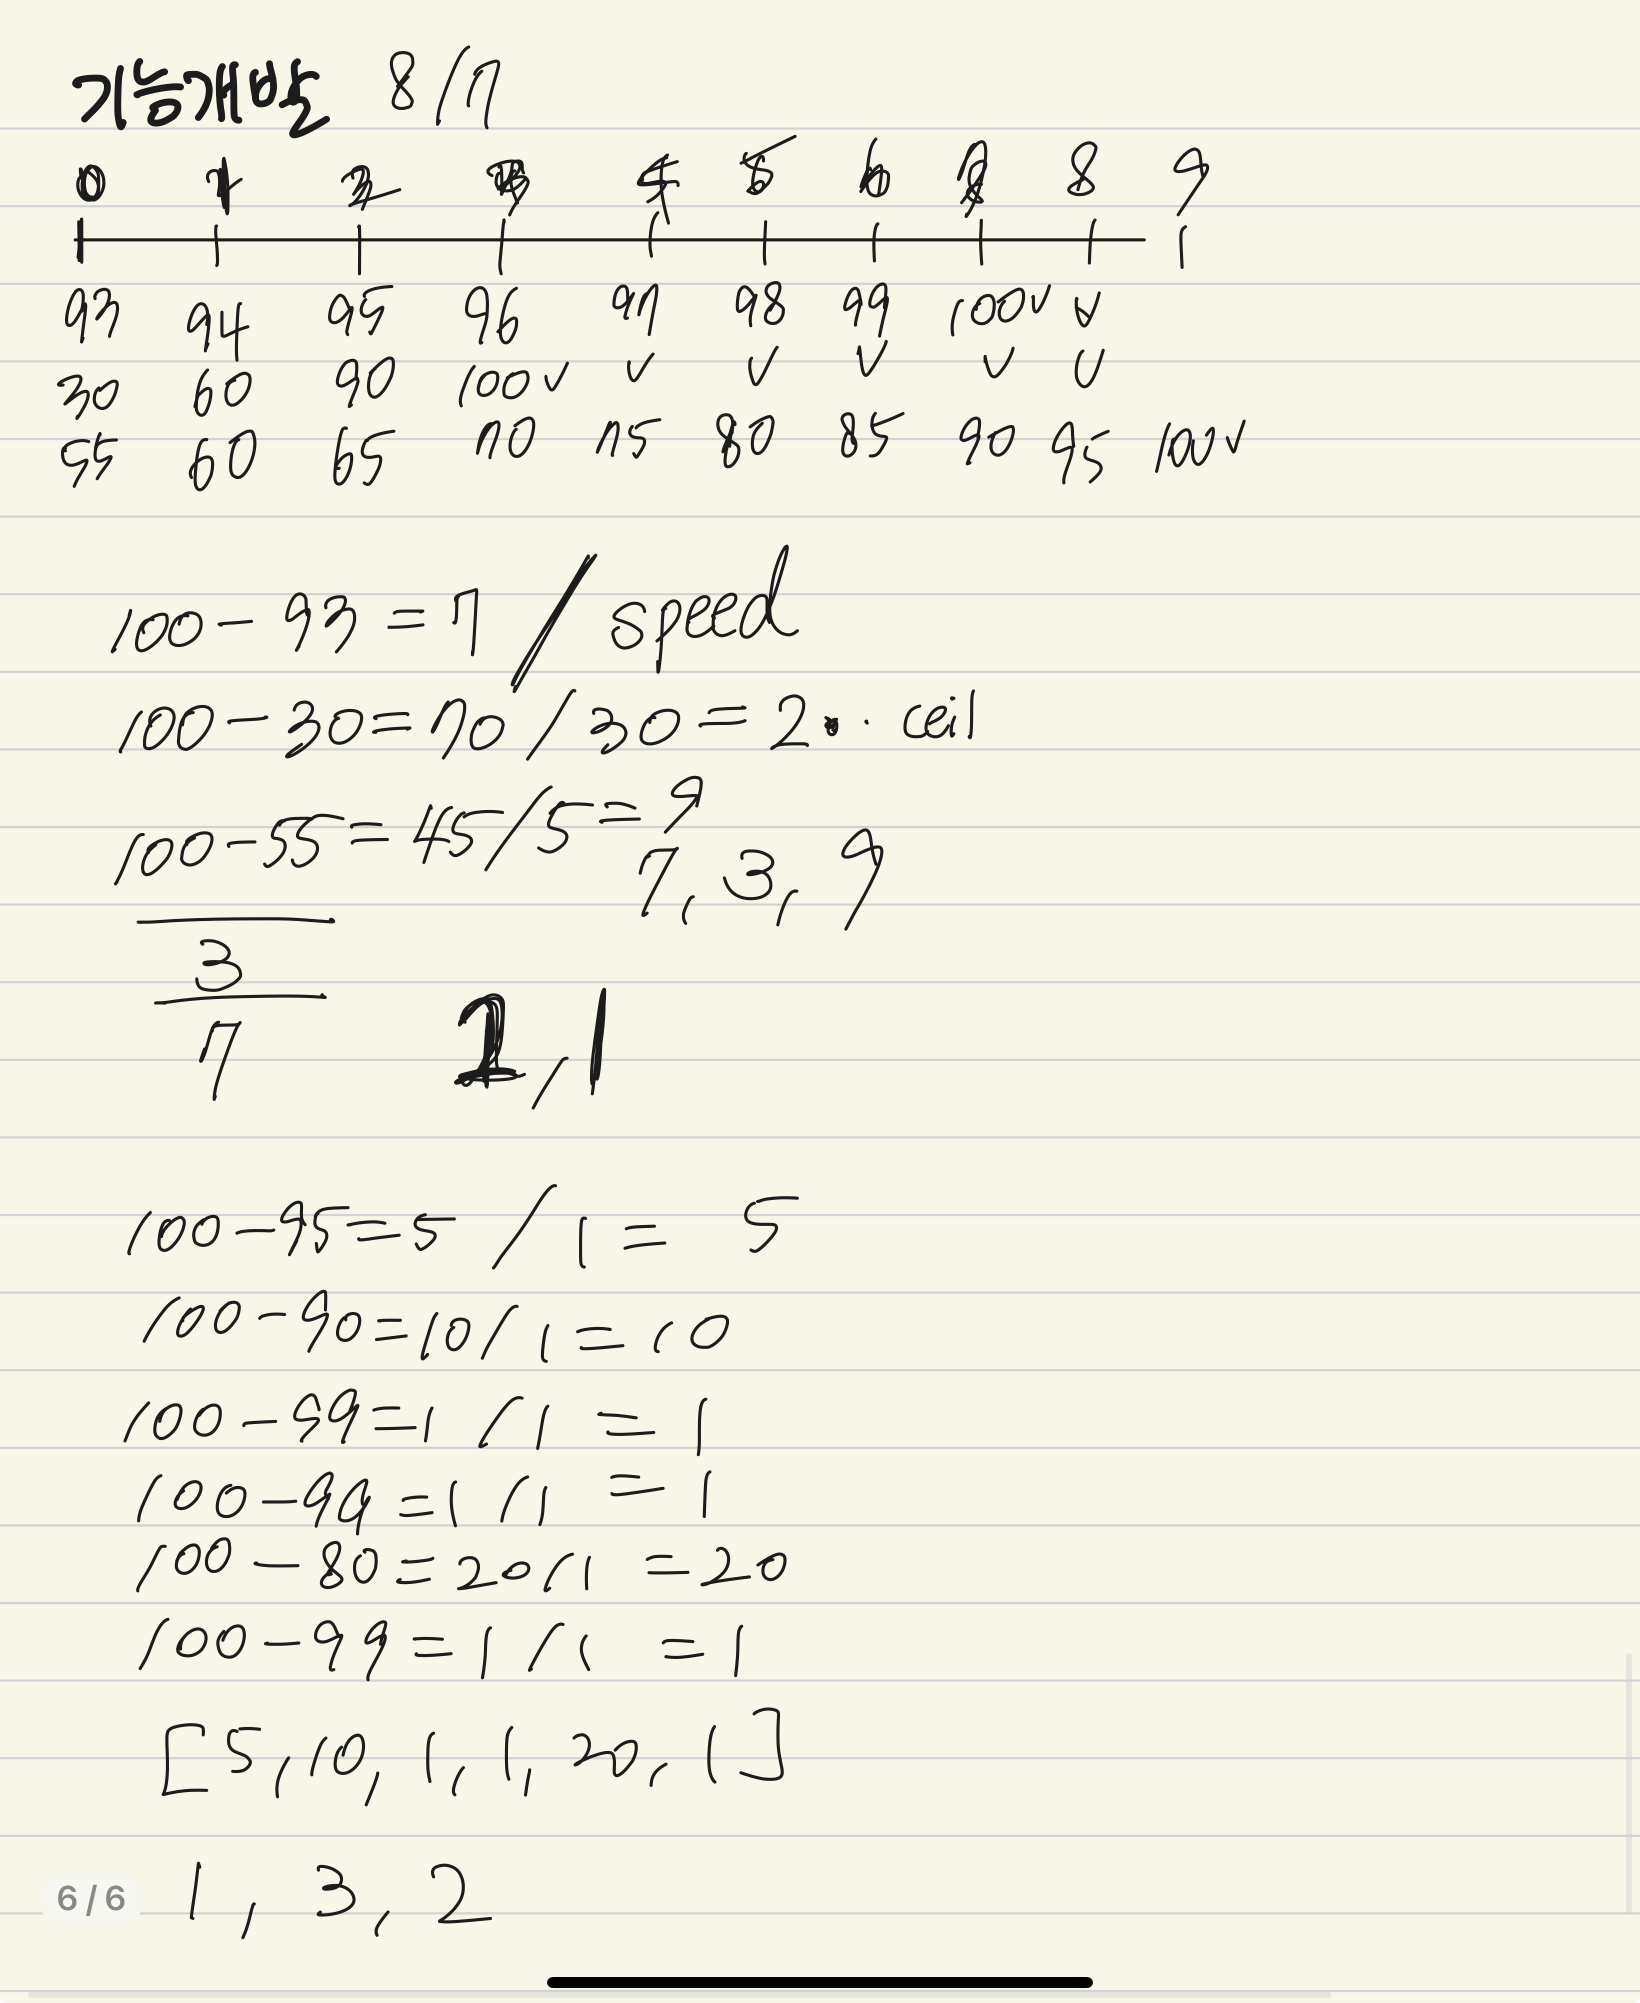 기능개발 8/7
0 1 2 3 4 5 6 7 8 9
93 94 95 96 97 98 99 100 v v
30 60 90 100 v v v v v v
55 60 65 70 75 80 85 90 95 100 v
100 - 93 = 7 / speed
100 - 30 = 70 / 30 = 2.. ceil
100 - 55 = 45 / 5 = 9
7, 3, 9
3
7
2, 1
100 - 95 = 5 / 1 = 5
100 - 90 = 10 / 1 = 10
100 - 99 = 1 / 1 = 1
100 - 99 = 1 / 1 = 1
100 - 80 = 20 / 1 = 20
100 - 99 = 1 / 1 = 1
[5, 10, 1, 1, 20, 1]
1, 3, 2
6 / 6